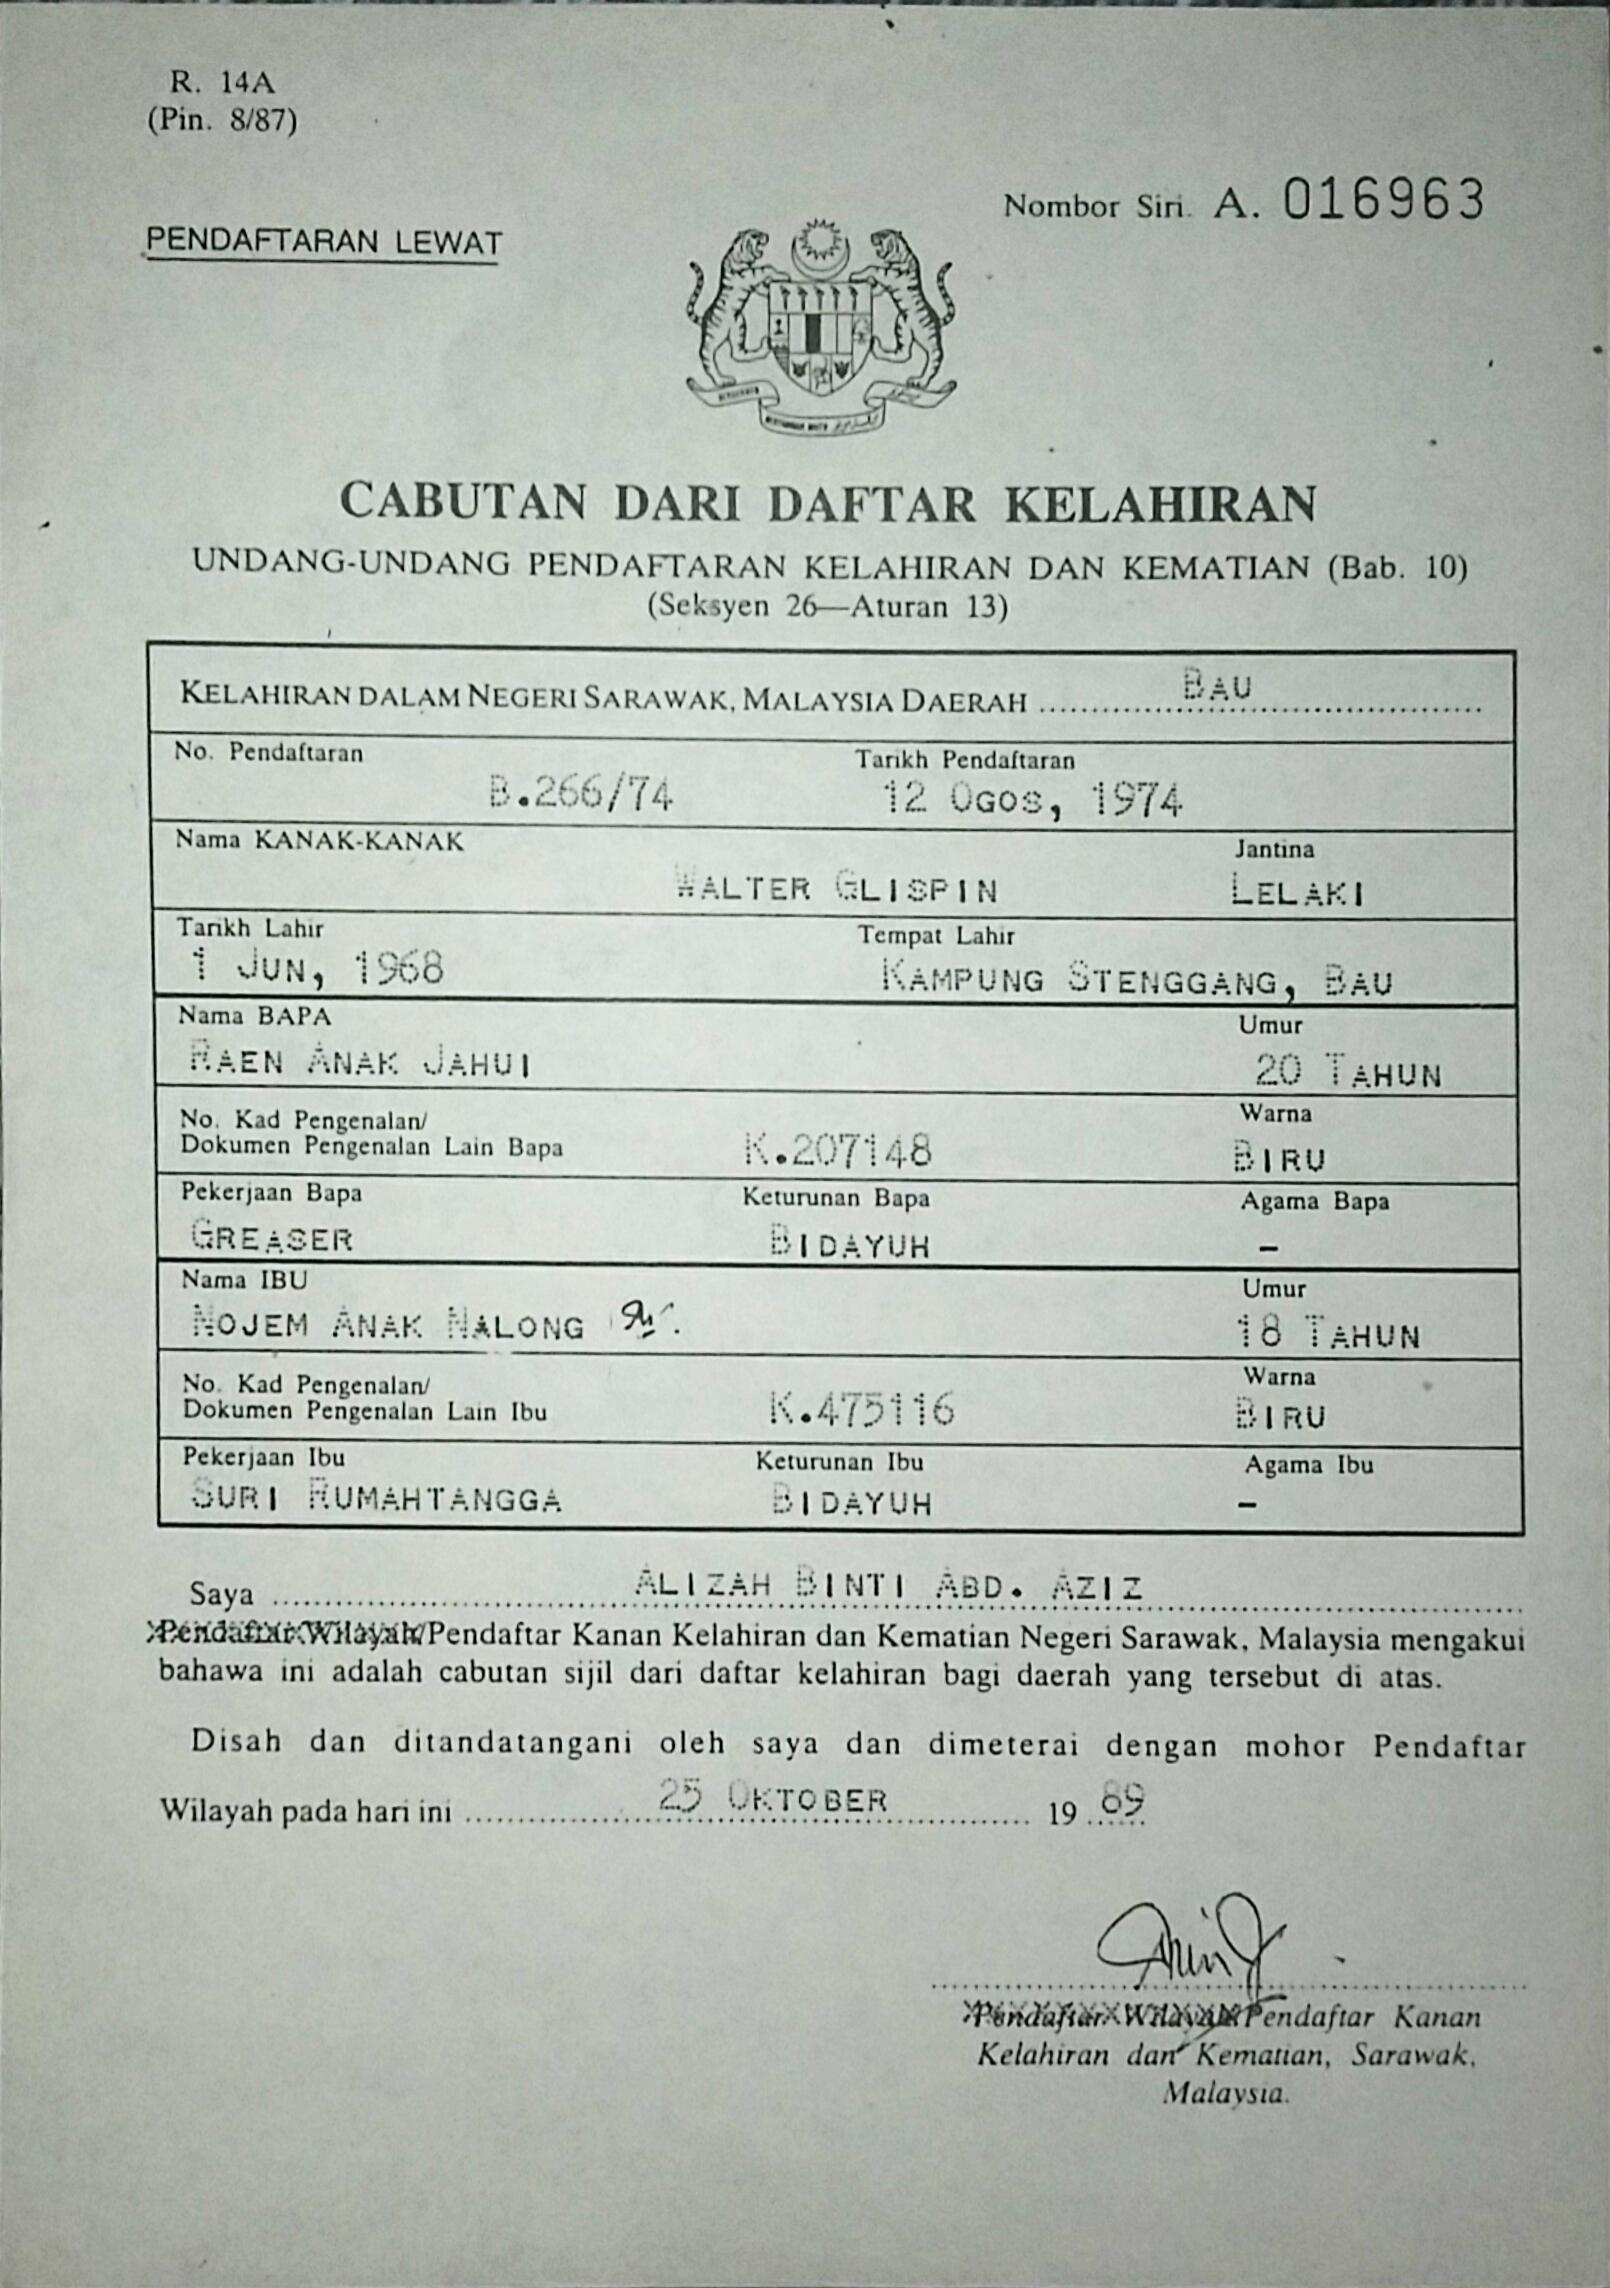 R. 14A
(Pin. 8/87)
Nombor Siri. A. 016963
PENDAFTARAN LEWAT
CABUTAN DARI DAFTAR KELAHIRAN
UNDANG-UNDANG PENDAFTARAN KELAHIRAN DAN KEMATIAN (Bab. 10)
(Seksyen 26—Aturan 13)
KELAHIRAN DALAM NEGERI SARAWAK, MALAYSIA DAERAH BAU
No. Pendaftaran Tarikh Pendaftaran
B.266/74 12 OGOS, 1974
Nama KANAK-KANAK Jantina
WALTER GLISPIN LELAKI
Tarikh Lahir Tempat Lahir
1 JUN, 1968 KAMPUNG STENGGANG, BAU
Nama BAPA Umur
RAEN ANAK JAHUI 20 TAHUN
No. Kad Pengenalan/ Warna
Dokumen Pengenalan Lain Bapa K.207148 BIRU
Pekerjaan Bapa Keturunan Bapa Agama Bapa
GREASER BIDAYUH –
Nama IBU Umur
NOJEM ANAK NALONG 18 TAHUN
No. Kad Pengenalan/ Warna
Dokumen Pengenalan Lain Ibu K.475116 BIRU
Pekerjaan Ibu Keturunan Ibu Agama Ibu
SURI RUMAHTANGGA BIDAYUH –
Saya ALIZAH BINTI ABD. AZIZ
Pendaftar Wilayah/Pendaftar Kanan Kelahiran dan Kematian Negeri Sarawak, Malaysia mengakui
bahawa ini adalah cabutan sijil dari daftar kelahiran bagi daerah yang tersebut di atas.
Disah dan ditandatangani oleh saya dan dimeterai dengan mohor Pendaftar
Wilayah pada hari ini 25 OKTOBER 19 89
Pendaftar Wilayah/Pendaftar Kanan
Kelahiran dan Kematian, Sarawak,
Malaysia.